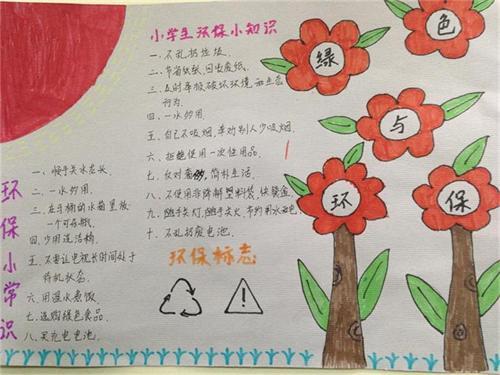 小学生环保小知识
一、不乱扔垃圾.
二、节省纸张,回收废纸.
三、及时举报破坏环境和生态
行为.
四、一水多用.
五、自己不吸烟,奉劝别人少吸烟.
六、拒绝使用一次性用品.
七、反对奢侈,简朴生活.
八、不使用非降解塑料袋、快餐盒.
九、随手关灯,随手关火,节约用水用电.
十、不乱扔废电池.
环保标志
环保小常识
一、慢手关水龙头.
二、一水多用.
三、在马桶的水箱里放
一个可乐瓶.
四、少用洗洁精.
五、不要让电视长时间处于
待机状态.
六、用温水煮饭.
七、选购绿色食品.
八、买充电电池.
绿
色
与
环
保